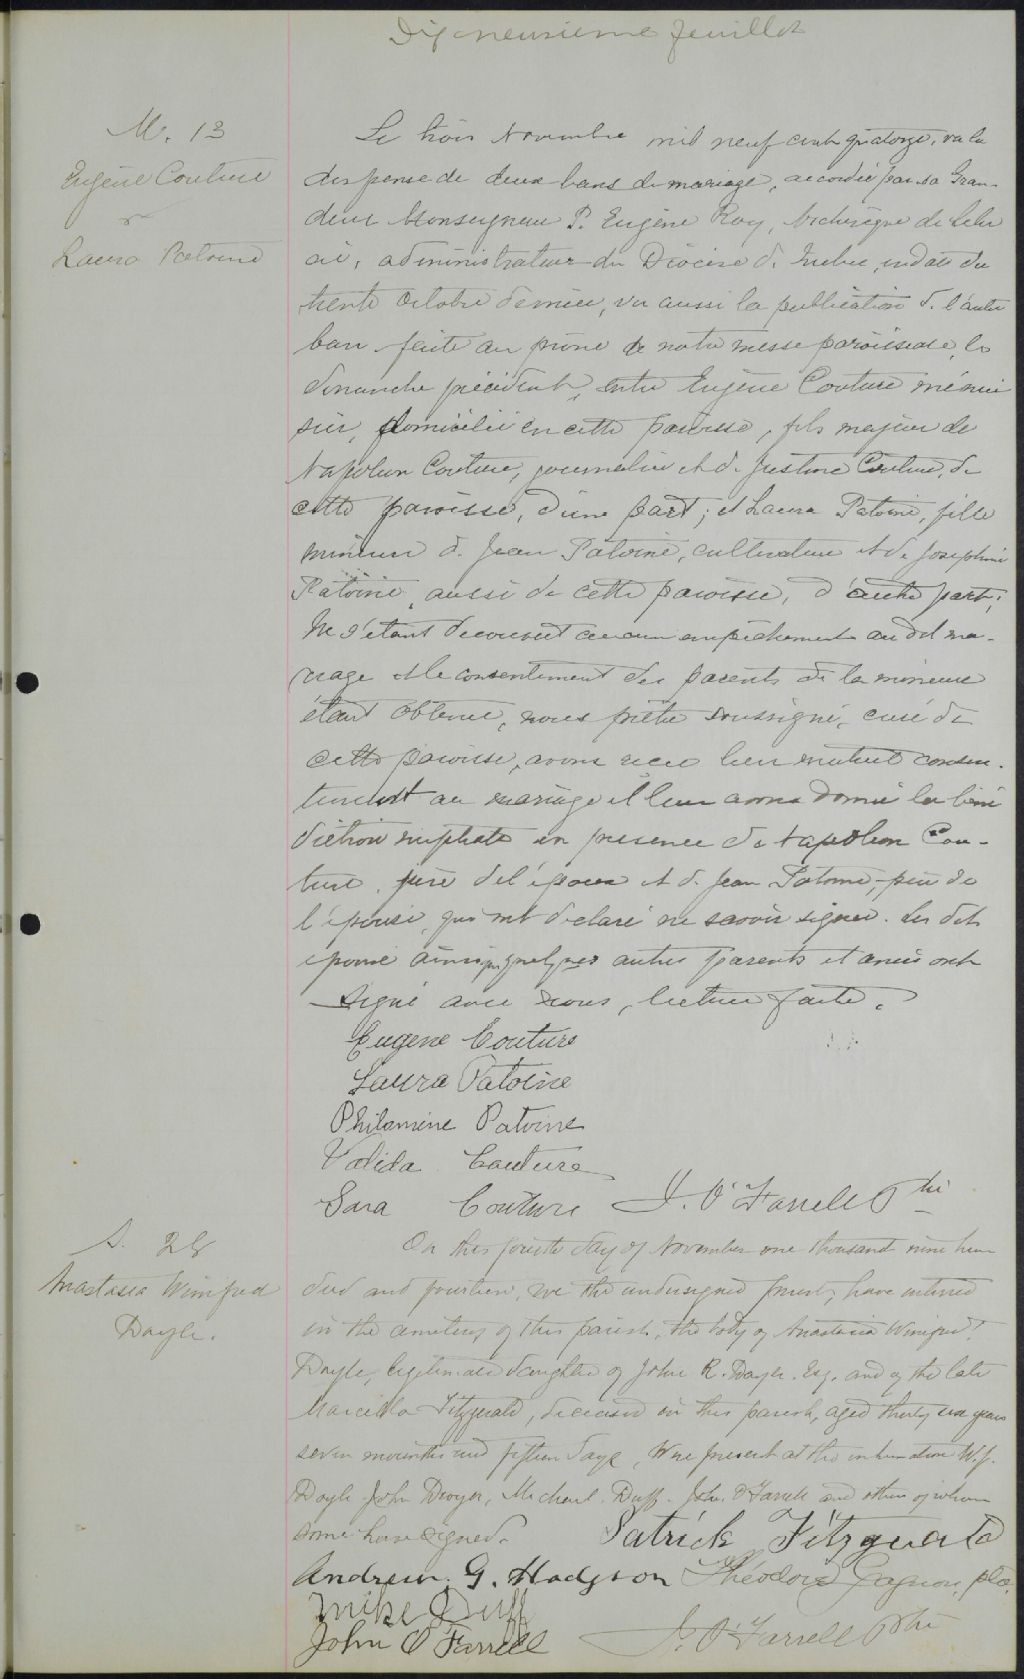 Dix neuvième feuillet
M. 13
Eugène Couture
&
Laura Patoine
Le trois Novembre mil neuf cent quatorze, vu la
dispense de deux bans de mariage, accordée par sa Gran-
deur Monseigneur P. Eugène Roy, Archevêque de Séleu
cie, administrateur du Diocèse de Québec, en date du
trente Octobre dernier, vu aussi la publication de l'autre
ban faite au prône de notre messe paroissiale, le
dimanche précédent, entre Eugène Couture menui
sier, domicilié en cette paroisse, fils majeur de
Napoléon Couture, journalier et de Justine Couture, de
cette paroisse, d'une part; et Laura Patoine, fille
mineure de Jean Patoine, cultivateur et de Joséphine
Patoine, aussi de cette paroisse, d'autre part;
Ne s'étant découvert aucun empêchement au dit ma-
riage et le consentement des parents de la mineure
étant obtenu, nous prêtre soussigné, curé de
cette paroisse, avons reçu leur mutuel consen-
tement au mariage et leur avons donné la béné
diction nuptiale en présence de Napoléon Cou-
ture, père de l'époux et de Jean Patoine, père de
l'épouse, qui ont déclaré ne savoir signer. Les dits
époux ainsi que quelques autres parents et amis ont
signé avec nous, lecture faite.
Eugene Couture
Laura Patoine
Philomine Patoine
Valida Couture
Sara Couture J. O'Farrell Ptre
S. 28
Anastasia Winifred
Doyle.
On this fourth day of November one thousand nine hun
dred and fourteen, we the undersigned priest, have interred
in the cemetery of this parish, the body of Anastasia Winifred
Doyle, legitimate daughter of John R. Doyle, Esq. and of the late
Marcella Fitzgerald, deceased in this parish, aged thirty six years
seven months and fifteen days. Were present at the inhumation W. J.
Doyle John Dwyer, Michael Duff, John O'Farrell and others of whom
some have signed.
Patrick Fitzgerald
Andrew. G. Hodgson Théodore Gagnon, ptre.
Mike Duff
John O Farrell J. O'Farrell Ptre